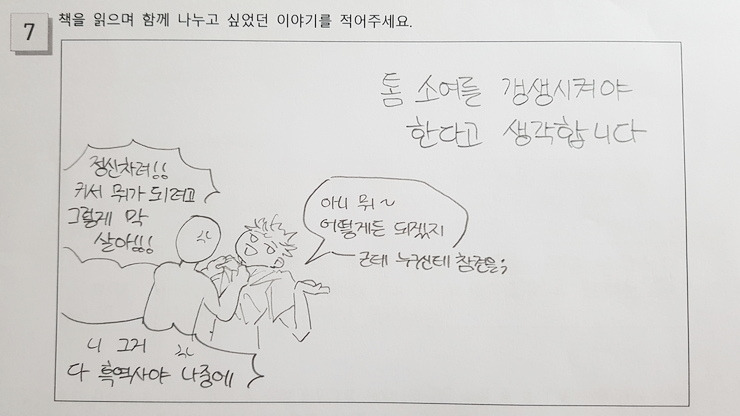 7
책을 읽으며 함께 나누고 싶었던 이야기를 적어주세요.
톰 소여를 갱생시켜야
한다고 생각합니다
정신차려!!
커서 뭐가 되려고
그렇게 막
살아!!!
아니 뭐~
어떻게든 되겠지
근데 누구신데 참견을;
니 그거
다 흑역사야 나중에